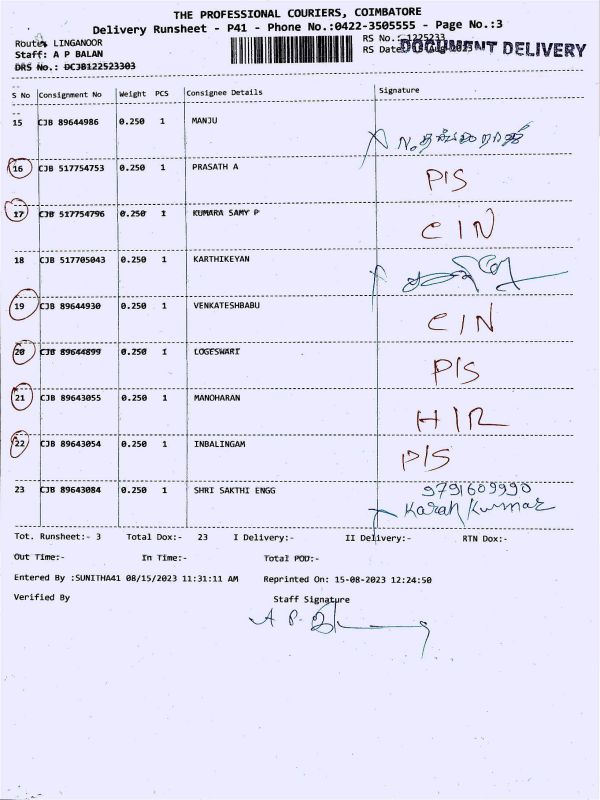 THE PROFESSIONAL COURIERS, COIMBATORE
Delivery Runsheet - P41 - Phone No.:0422-3505555 - Page No.:3
Route: LINGANOOR
RS No.: 1225233
Staff: A P BALAN
RS Date
DOCUMENT DELIVERY
DRS No.: DCJB122523303
S No Consignment No Weight PCS Consignee Details Signature
15 CJB 89644986 0.250 1 MANJU
16 CJB 517754753 0.250 1 PRASATH A P/S
17 CJB 517754796 0.250 1 KUMARA SAMY P C/N
18 CJB 517705043 0.250 1 KARTHIKEYAN
19 CJB 89644930 0.250 1 VENKATESHBABU C/N
20 CJB 89644899 0.250 1 LOGESWARI P/S
21 CJB 89643055 0.250 1 MANOHARAN H/R
22 CJB 89643054 0.250 1 INBALINGAM P/S
23 CJB 89643084 0.250 1 SHRI SAKTHI ENGG 9791609990
Karan Kummar
Tot. Runsheet:- 3 Total Dox:- 23 I Delivery:- II Delivery:- RTN Dox:-
Out Time:- In Time:- Total POD:-
Entered By :SUNITHA41 08/15/2023 11:31:11 AM Reprinted On: 15-08-2023 12:24:50
Verified By Staff Signature
A P.